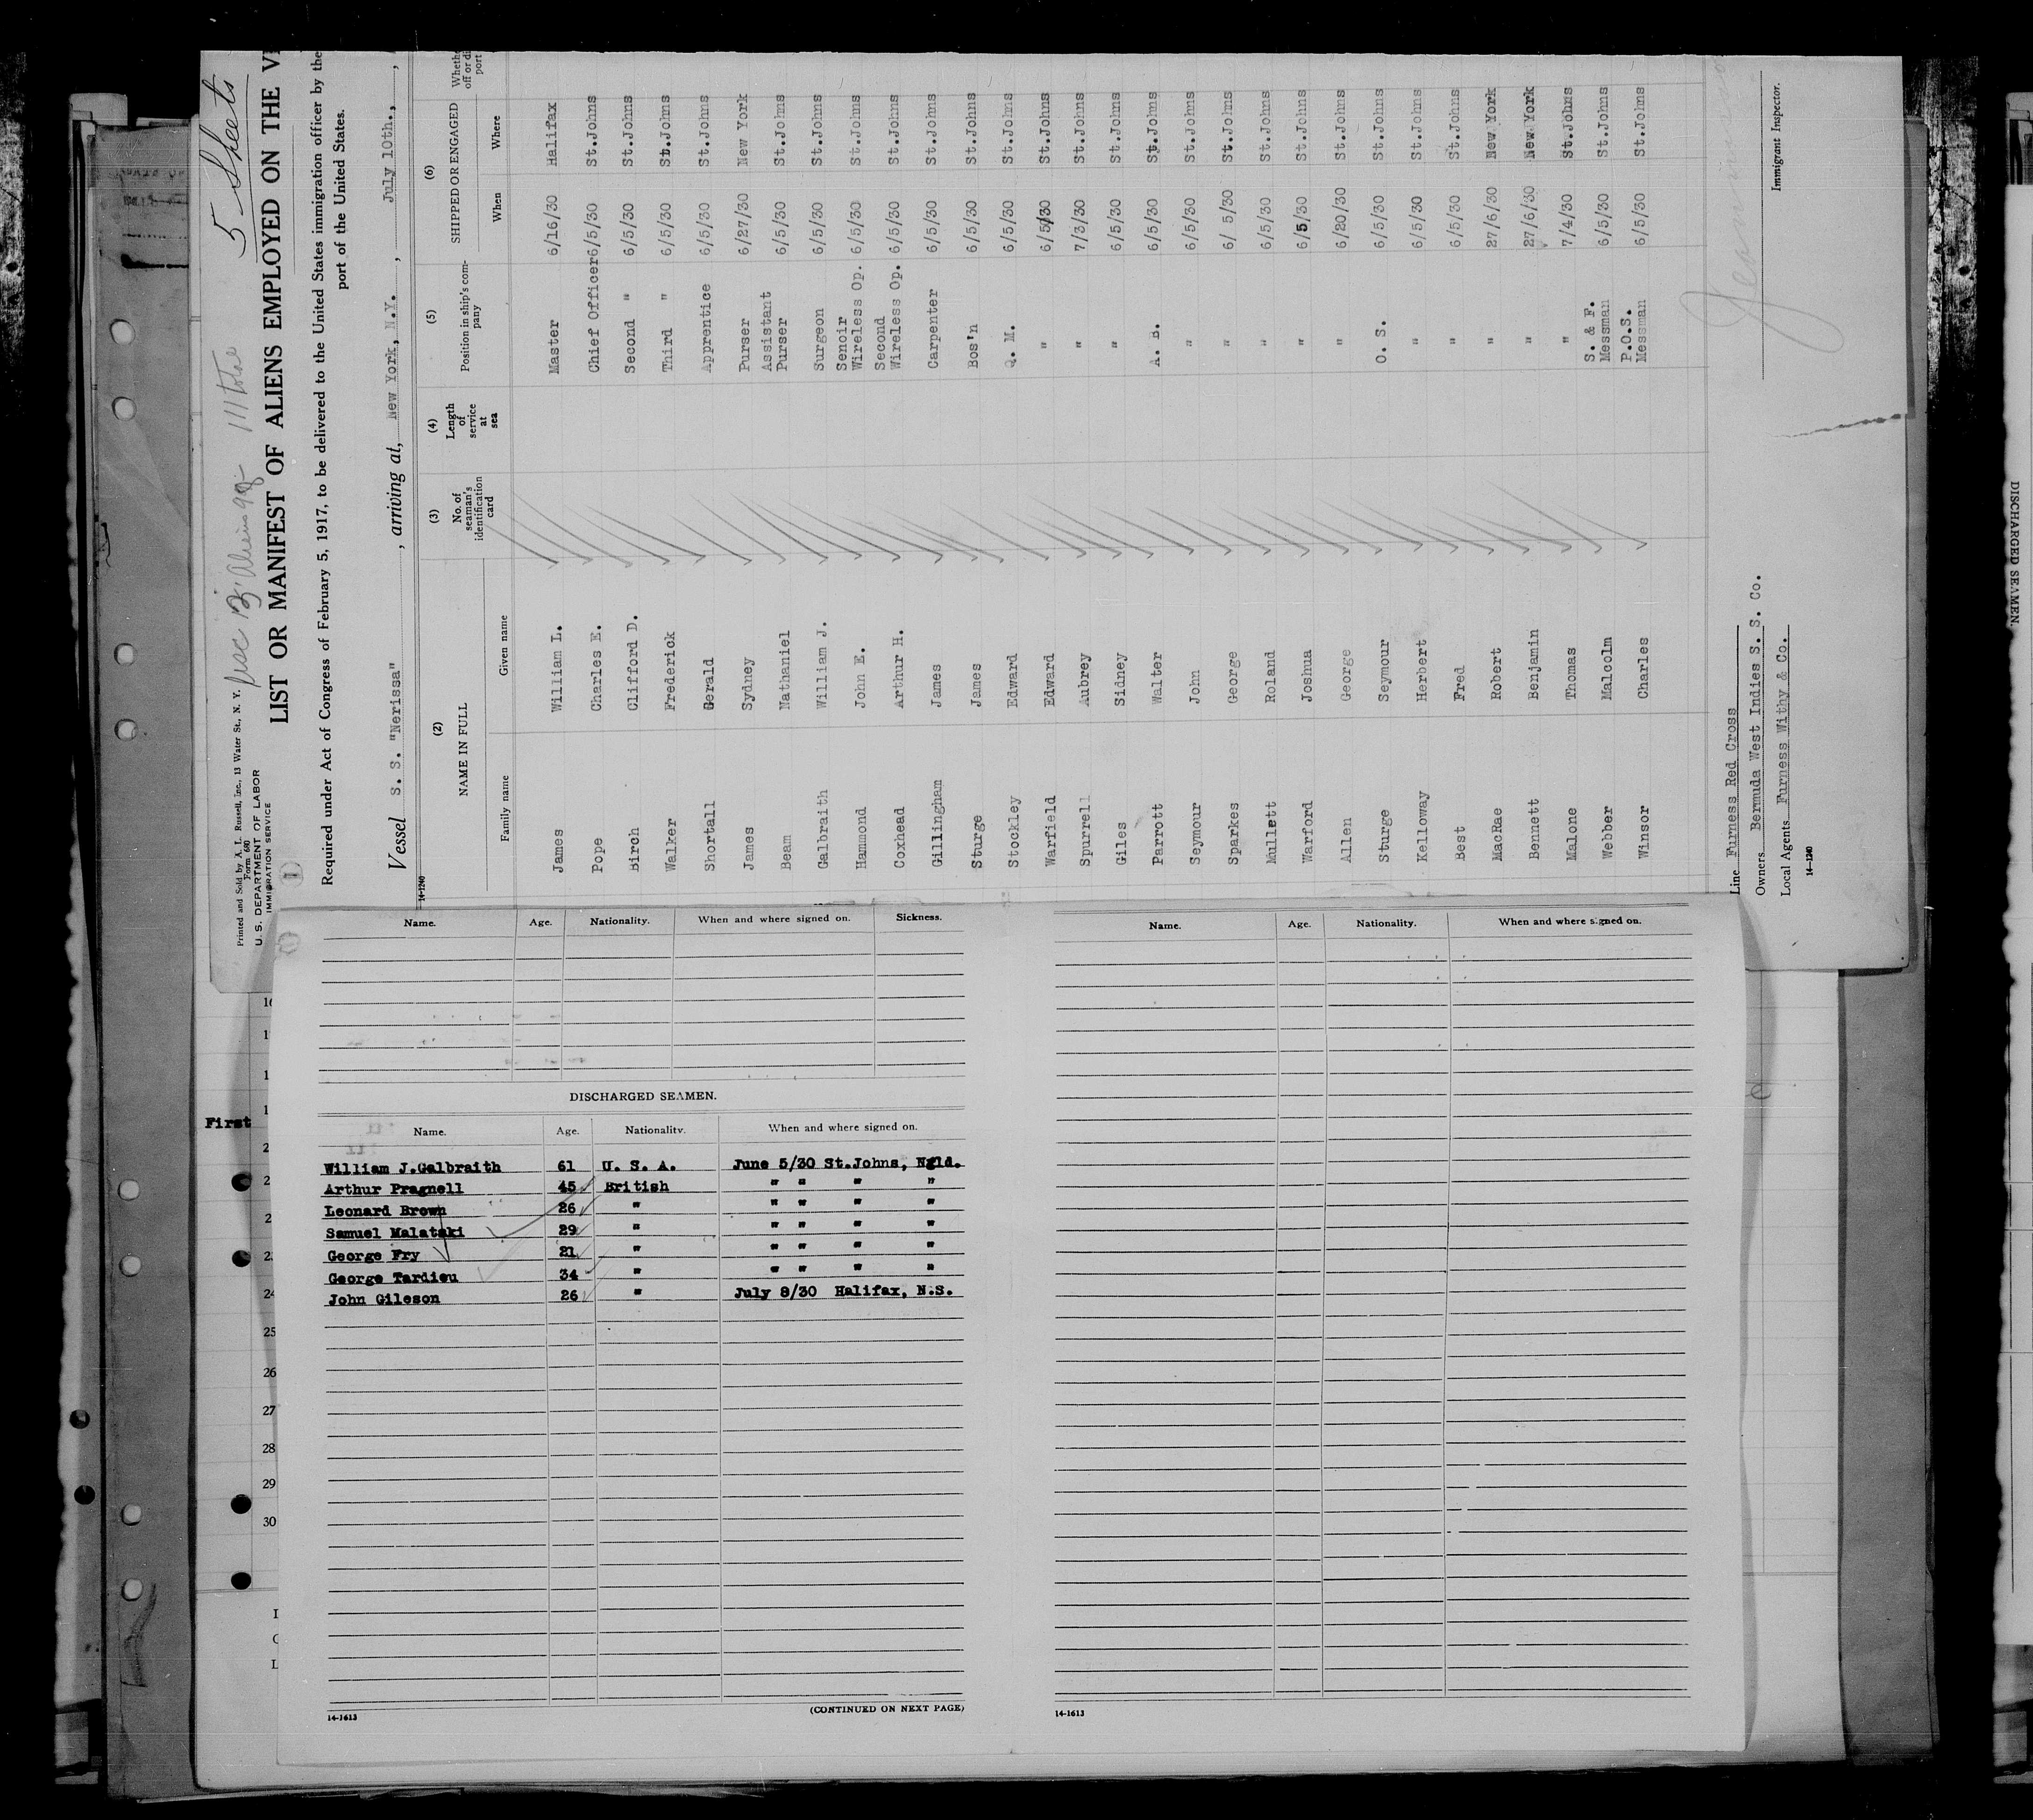 5 Sheets
Printed and Sold by A. L. Russell, Inc., 13 Water St., N. Y.
Form 680
U. S. DEPARTMENT OF LABOR
IMMIGRATION SERVICE
1
LIST OR MANIFEST OF ALIENS EMPLOYED ON THE
Required under Act of Congress of February 5, 1917, to be delivered to the United States immigration officer by the
port of the United States.
Vessel S. S. "Nerissa", arriving at, New York, N.Y., July 10th.,
14-1240
(2) (3) (4) (5) (6)
NAME IN FULL No. of seaman's identification card Length of service at sea Position in ship's company SHIPPED OR ENGAGED
Family name Given name When Where
James William L. Master 6/16/30 Halifax
Pope Charles E. Chief Officer 6/5/30 St.Johns
Birch Clifford D. Second " 6/5/30 St.Johns
Walker Frederick Third " 6/5/30 St.Johns
Shortall Gerald Apprentice 6/5/30 St.Johns
James Sydney Purser 6/27/30 New York
Beam Nathaniel Assistant Purser 6/5/30 St.Johns
Galbraith William J. Surgeon 6/5/30 St.Johns
Hammond John E. Senoir Wireless Op. 6/5/30 St.Johns
Coxhead Arthur H. Second Wireless Op. 6/5/30 St.Johns
Gillingham James Carpenter 6/5/30 St.Johns
Sturge James Bos'n 6/5/30 St.Johns
Stockley Edward Q. M. 6/5/30 St.Johns
Warfield Edward " 6/5/30 St.Johns
Spurrell Aubrey " 7/3/30 St.Johns
Giles Sidney " 6/5/30 St.Johns
Parrott Walter A. B. 6/5/30 St.Johns
Seymour John " 6/5/30 St.Johns
Sparkes George " 6/ 5/30 St.Johns
Mullett Roland " 6/5/30 St.Johns
Warford Joshua " 6/5/30 St.Johns
Allen George " 6/20/30 St.Johns
Sturge Seymour O. S. 6/5/30 St.Johns
Kelloway Herbert " 6/5/30 St.Johns
Best Fred " 6/5/30 St.Johns
MacRae Robert " 27/6/30 New York
Bennett Benjamin " 27/6/30 New York
Malone Thomas " 7/4/30 St.Johns
Webber Malcolm S. & F. Messman 6/5/30 St.Johns
Winsor Charles P.O.S. Messman 6/5/30 St.Johns
Line Furness Red Cross
Owners Bermuda West Indies S. S. Co.
Local Agents Furness Withy & Co.
Immigrant Inspector.
14-1240
Name. Age. Nationality. When and where signed on. Sickness.
DISCHARGED SEAMEN.
Name. Age. Nationality. When and where signed on.
William J.Galbraith 61 U. S. A. June 5/30 St.Johns, Nfld.
Arthur Pragnell 45 British " " " "
Leonard Brown 26 " " " " "
Samuel Malataki 29 " " " " "
George Fry 21 " " " " "
George Tardieu 34 " " " " "
John Gileson 26 " July 8/30 Halifax, N.S.
(CONTINUED ON NEXT PAGE)
14-1613
Name. Age. Nationality. When and where signed on.
14-1613
First
24
25
26
27
28
29
30
DISCHARGED SEAMEN.